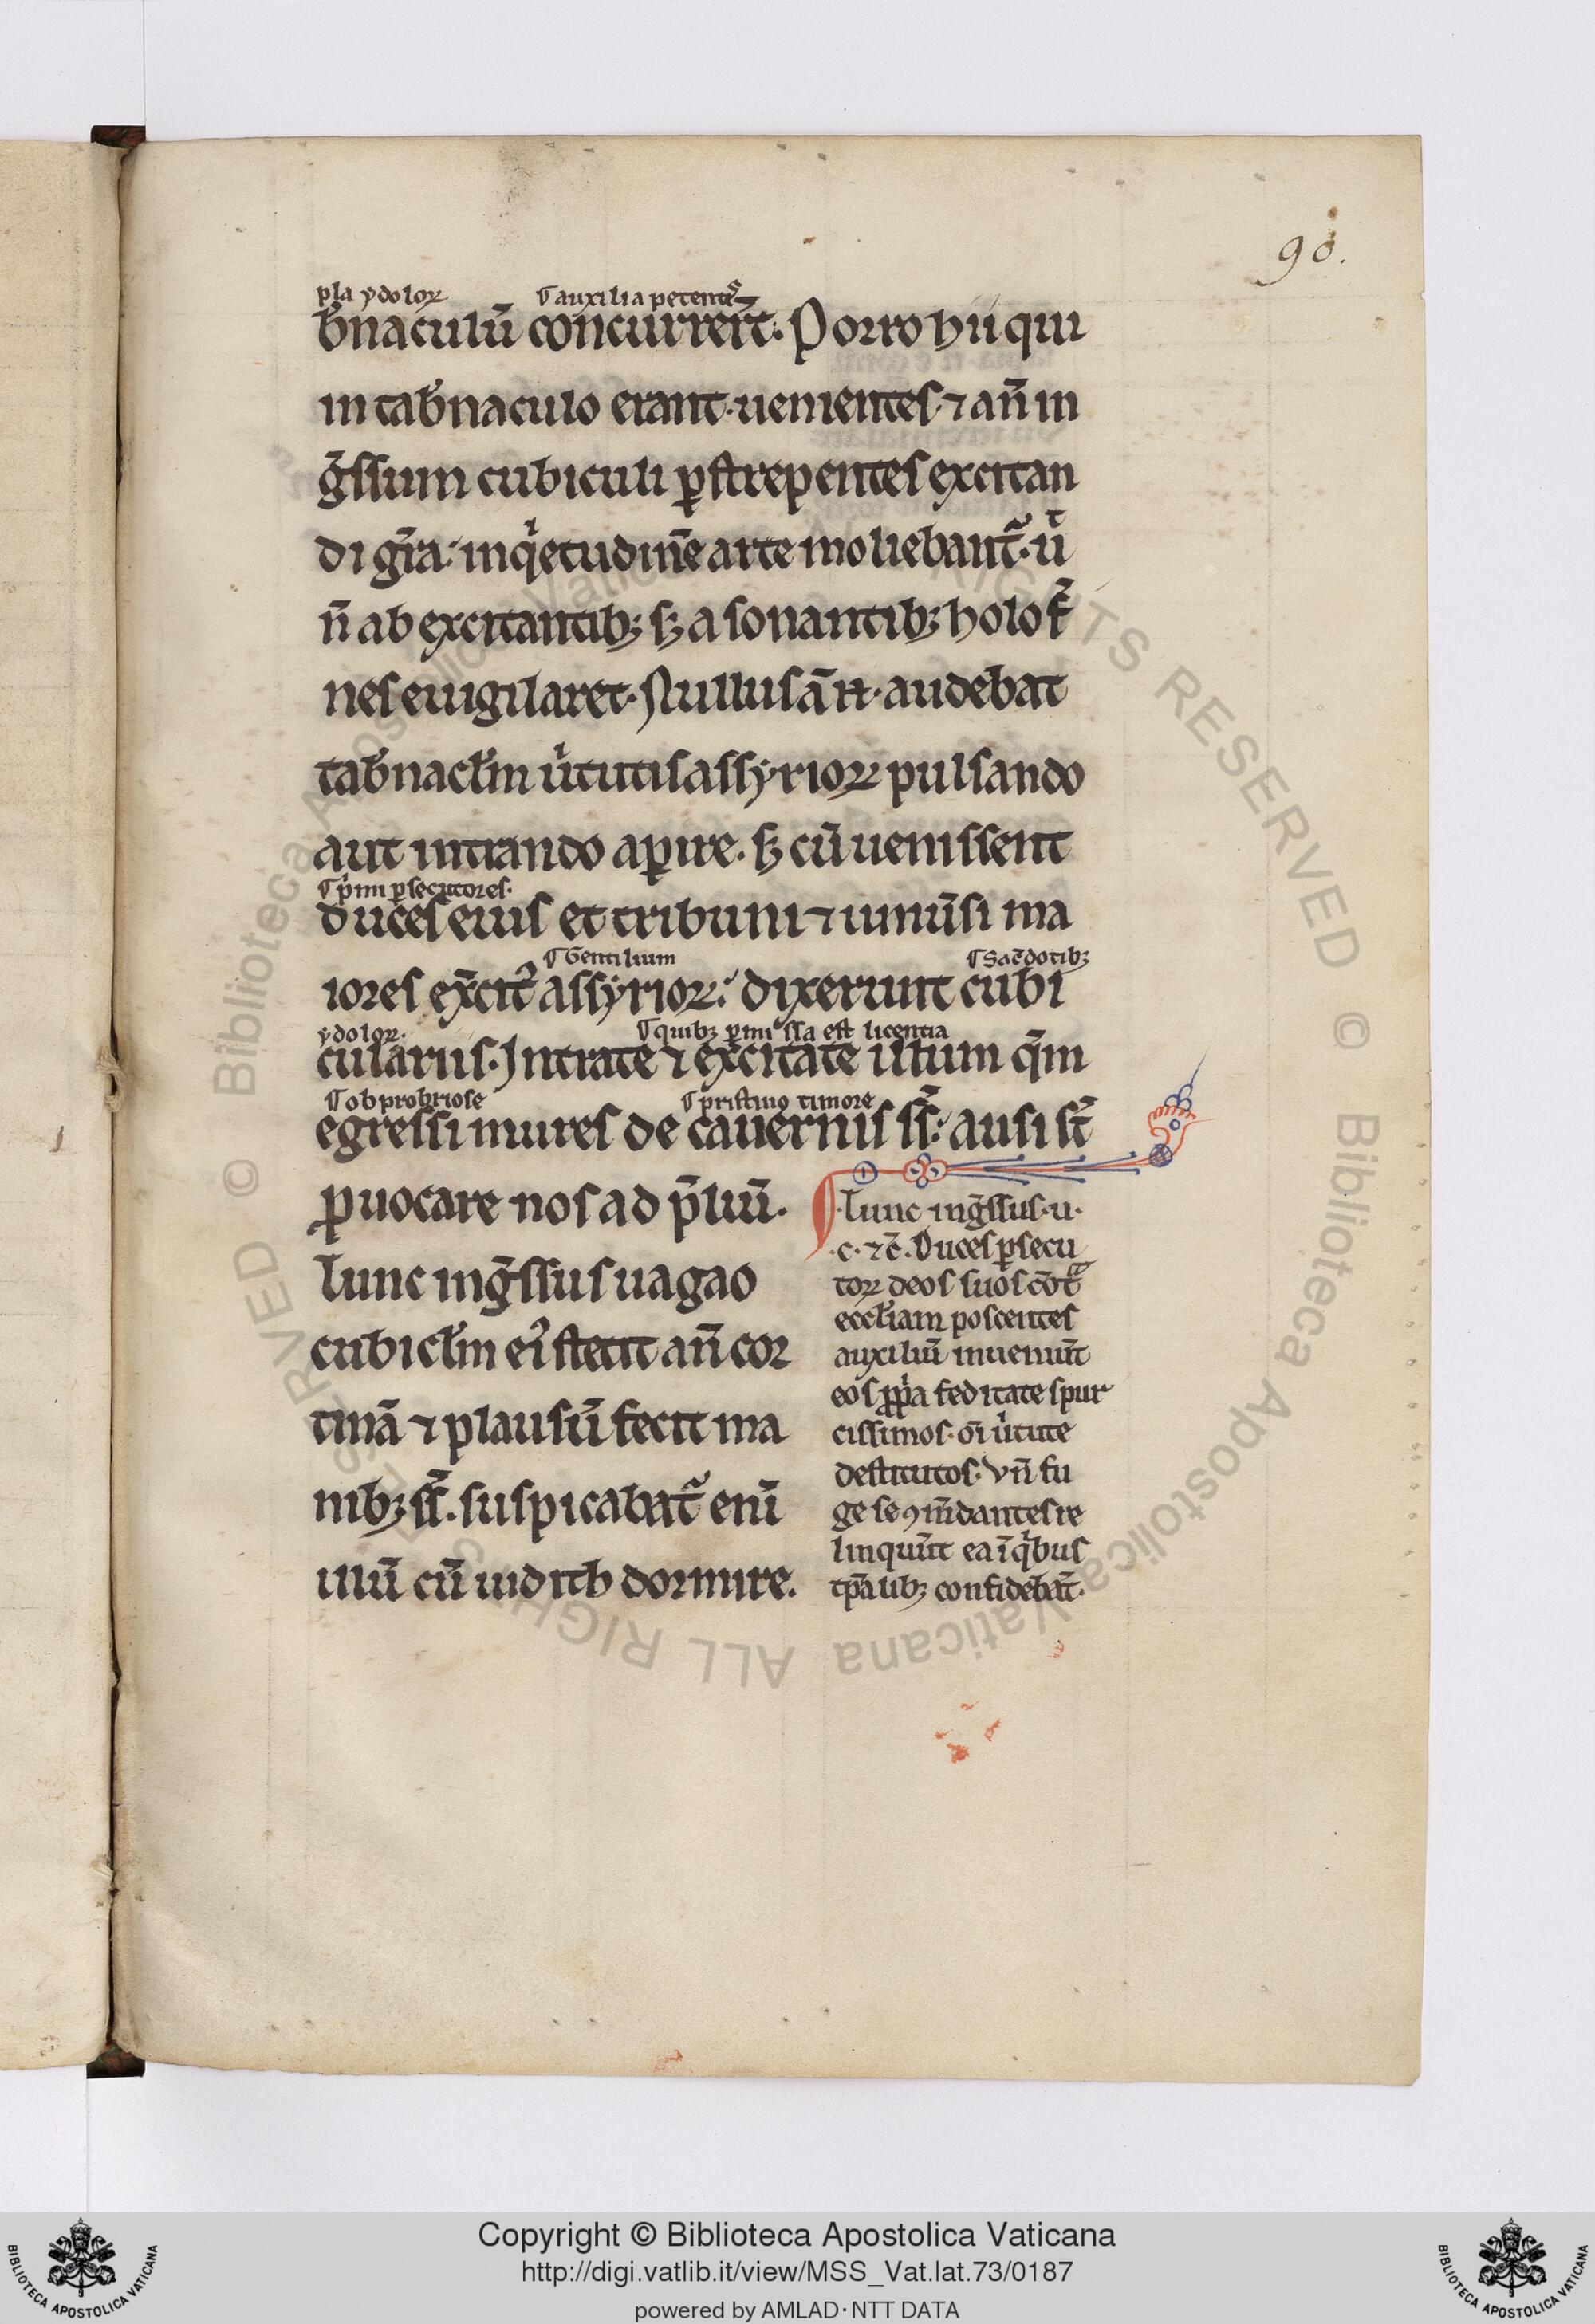 90.
pla ydoloꝝ ¶auxilia petentes
b̄naculū concurrer̄t. Porro hii qui
in tab̄naculo erant·uenientes·⁊ an̄ in
ḡssum cubiculi ꝑstrepentes excitan
di gr̄a: inqͥetudinē arte moliebant᷑. ut
n̄ ab excitantibꝫ sꝫ a sonantibꝫ holof̄
nes euigilaret. Nullus āꝶ·audebat
tab̄nacl̄m uͥtutis assyrioꝝ pulsando
aut intrando aꝑire. sꝫ cū uenissent
¶pͥmi ꝑsecutores.
duces eius et tribuni ⁊ uniūsi ma
¶Gentilium ¶Sac̄dotibꝫ
iores ex̄cit᷒ assyrioꝝ: dixerunt cubi
ydoloꝝ. ¶quibꝫ ꝑmissa est licentia
culariis. Intrate ⁊ excitate illum qm̄
¶obprobriose ¶pristino timore
egressi mures de cauernis ss̄: ausi st̄
ꝓuocare nos ad p̄liū.
Tunc ingͣssus uagao
cubicl̄m ei᷒ stetit an̄ cor
tinā ⁊ plausū fecit ma
nibꝫ ss̄. suspicabat᷑ enī
illū cū iudith dormire.
Tunc ingͣssus·u·
·c·⁊c̄. Duces ꝑsecu
toꝝ deos suos cōtͣ
eccl̄iam poscentes
auxiliū inueniūt
eos ꝓpͥa feditate spur
cissimos· oī uͥtute
destitutos. Vn̄ fu
ge se ꝯm̄dantes re
linquūt ea ī qͥbus
tp̄alibꝫ confidebāt.
Copyright © Biblioteca Apostolica Vaticana
http://digi.vatlib.it/view/MSS_Vat.lat.73/0187
powered by AMLAD·NTT DATA
BIBLIOTECA APOSTOLICA VATICANA
BIBLIOTECA APOSTOLICA VATICANA